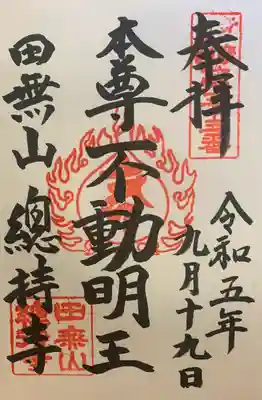 奉拝
令和五年
九月十九日
本尊不動明王
田無山 總持寺
田無山
總持寺